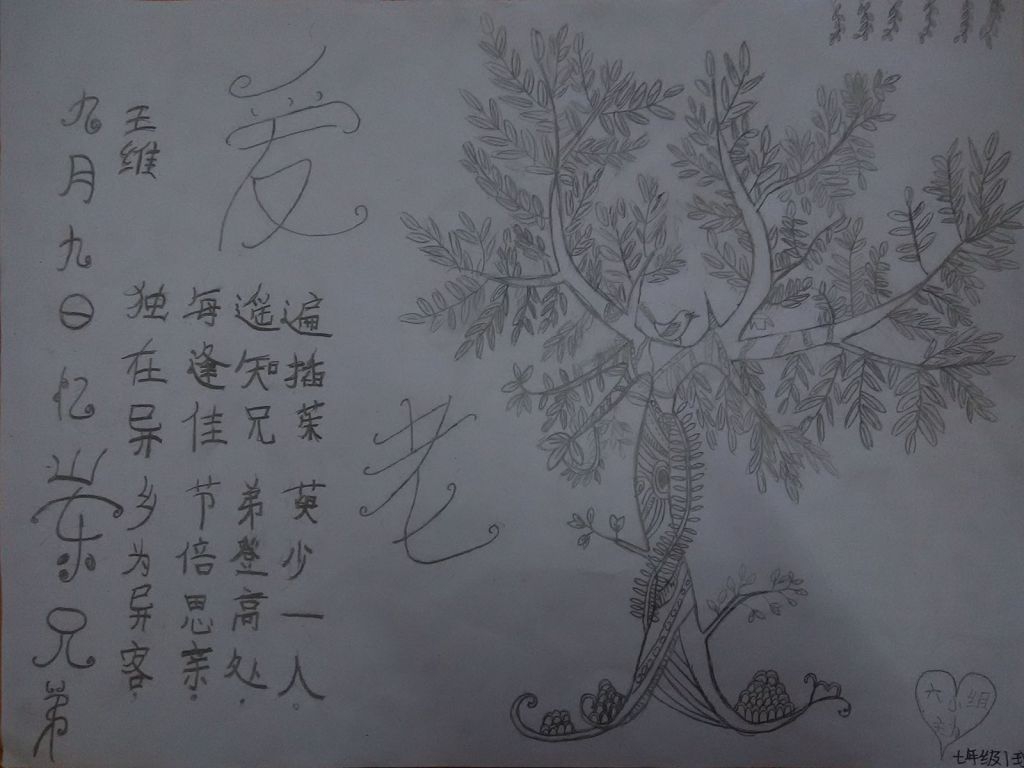 九月九日忆山东兄弟
王维
独在异乡为异客，
每逢佳节倍思亲。
遥知兄弟登高处，
遍插茱萸少一人。
爱
老
六小组
七年级1班